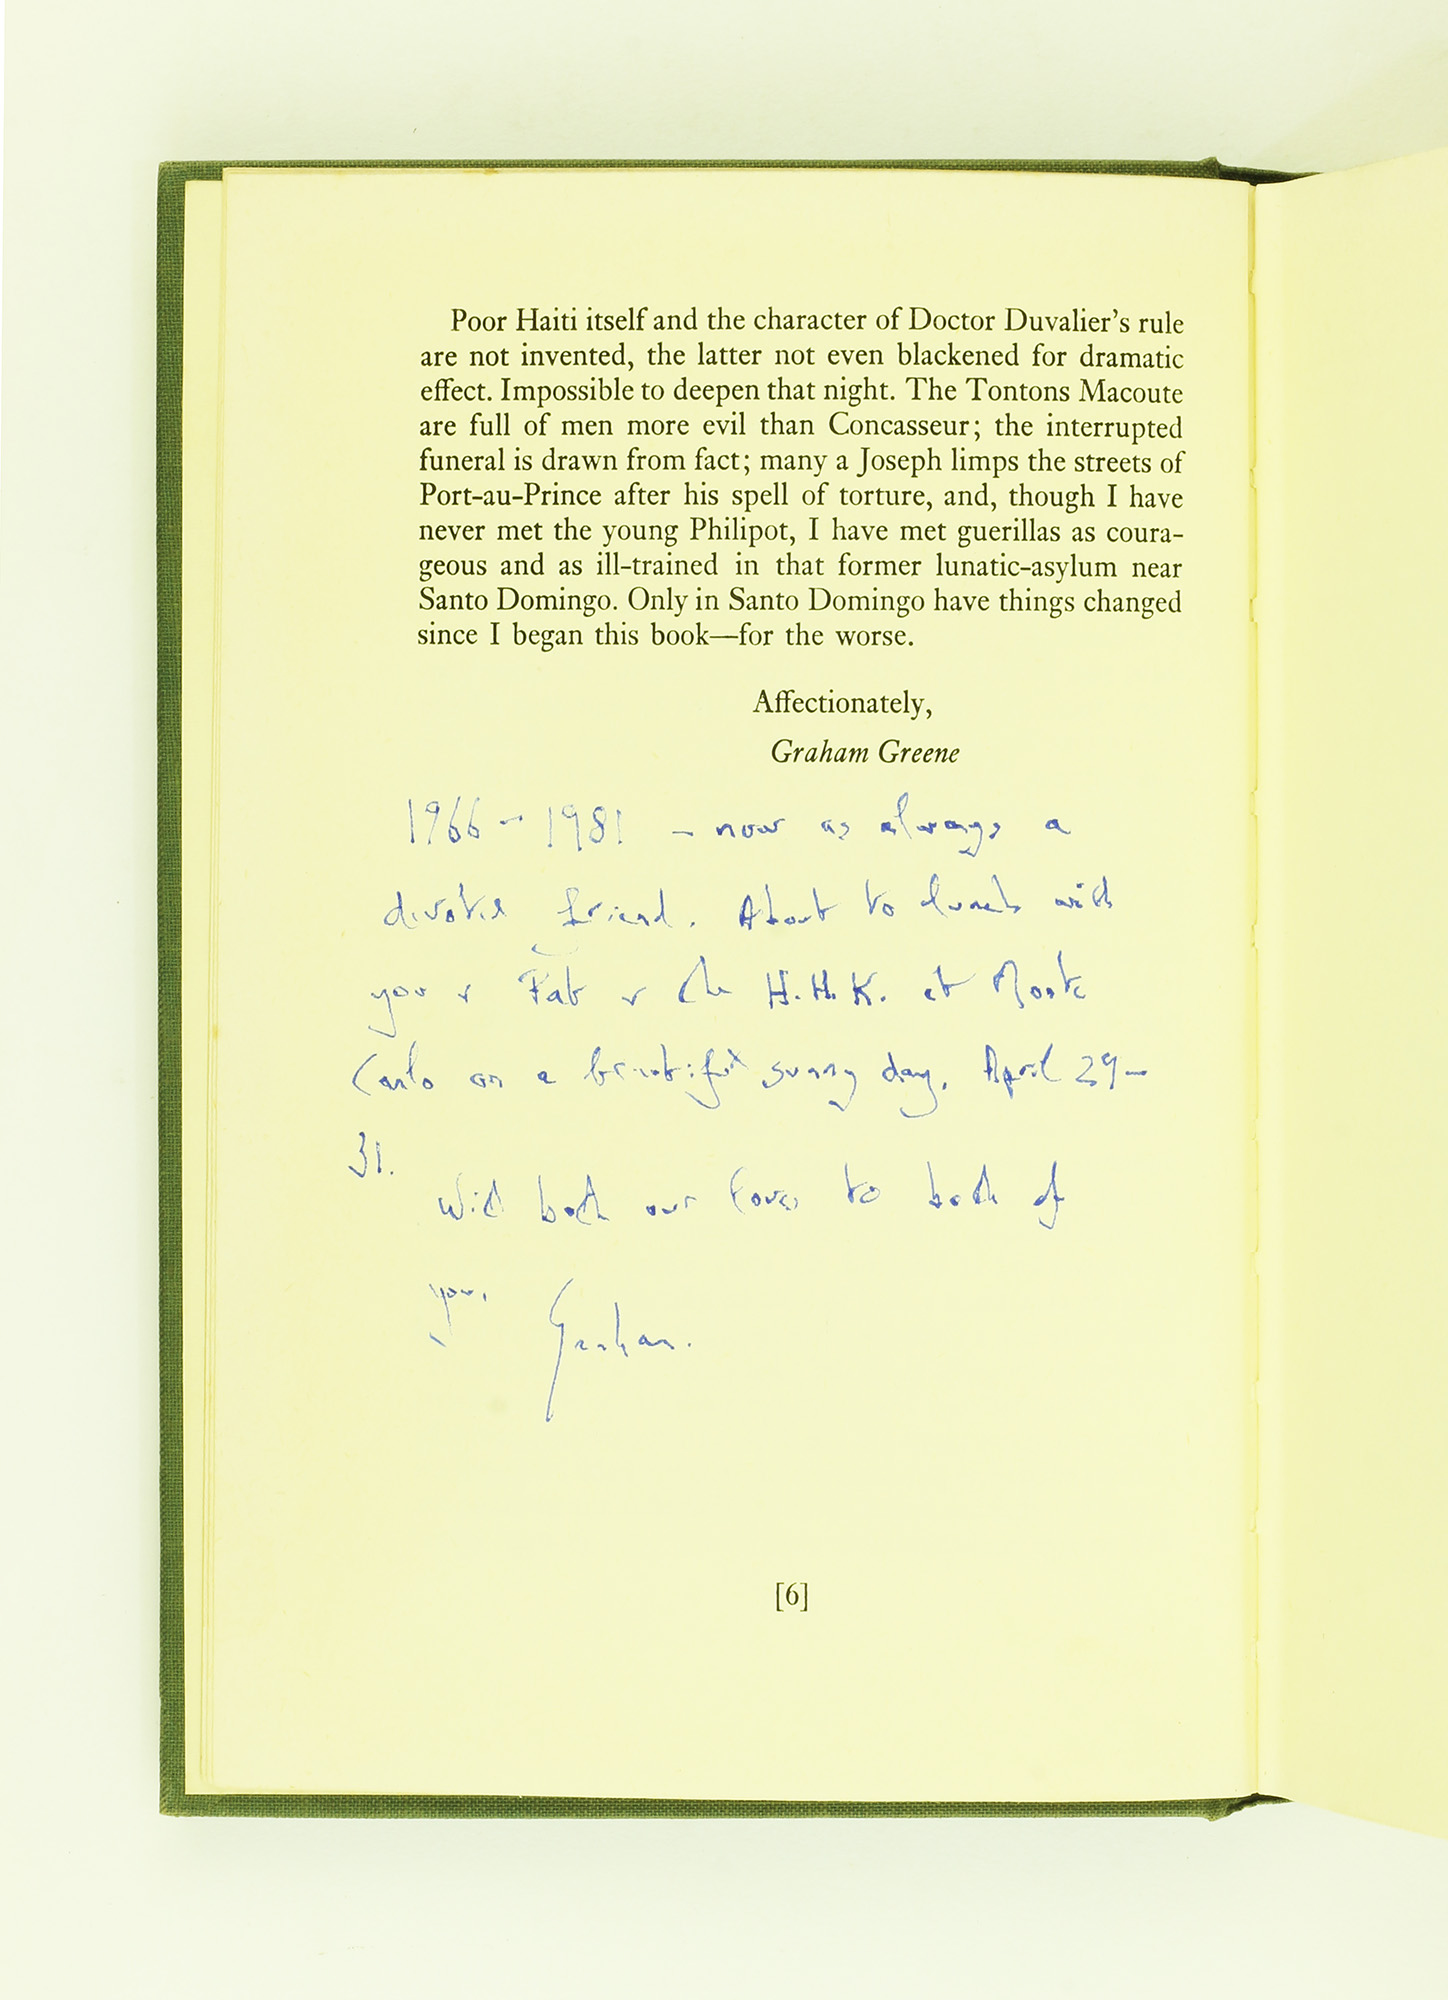 Poor Haiti itself and the character of Doctor Duvalier's rule
are not invented, the latter not even blackened for dramatic
effect. Impossible to deepen that night. The Tontons Macoute
are full of men more evil than Concasseur; the interrupted
funeral is drawn from fact; many a Joseph limps the streets of
Port-au-Prince after his spell of torture, and, though I have
never met the young Philipot, I have met guerillas as coura-
geous and as ill-trained in that former lunatic-asylum near
Santo Domingo. Only in Santo Domingo have things changed
since I began this book—for the worse.
Affectionately,
Graham Greene
1966 - 1981 - now as always a
devoted friend. About to lunch with
you & Pat & the H.H.K. at Monte
Carlo on a beautiful sunny day. April 29-
31.
With both our loves to both of
you.
Graham.
[6]